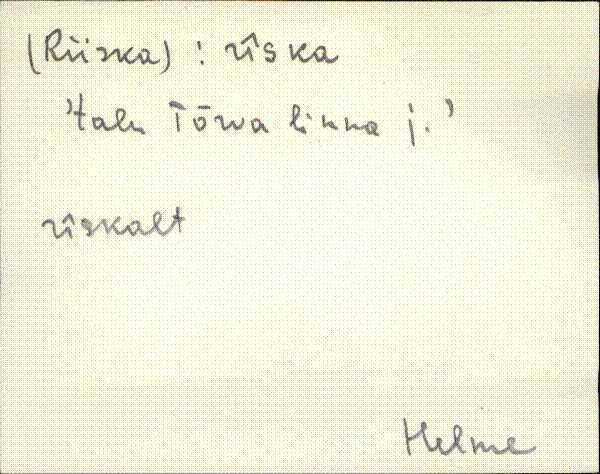 (Riiska) : rîska
'talu Tõrva linna j.'
rîskalt
Helme